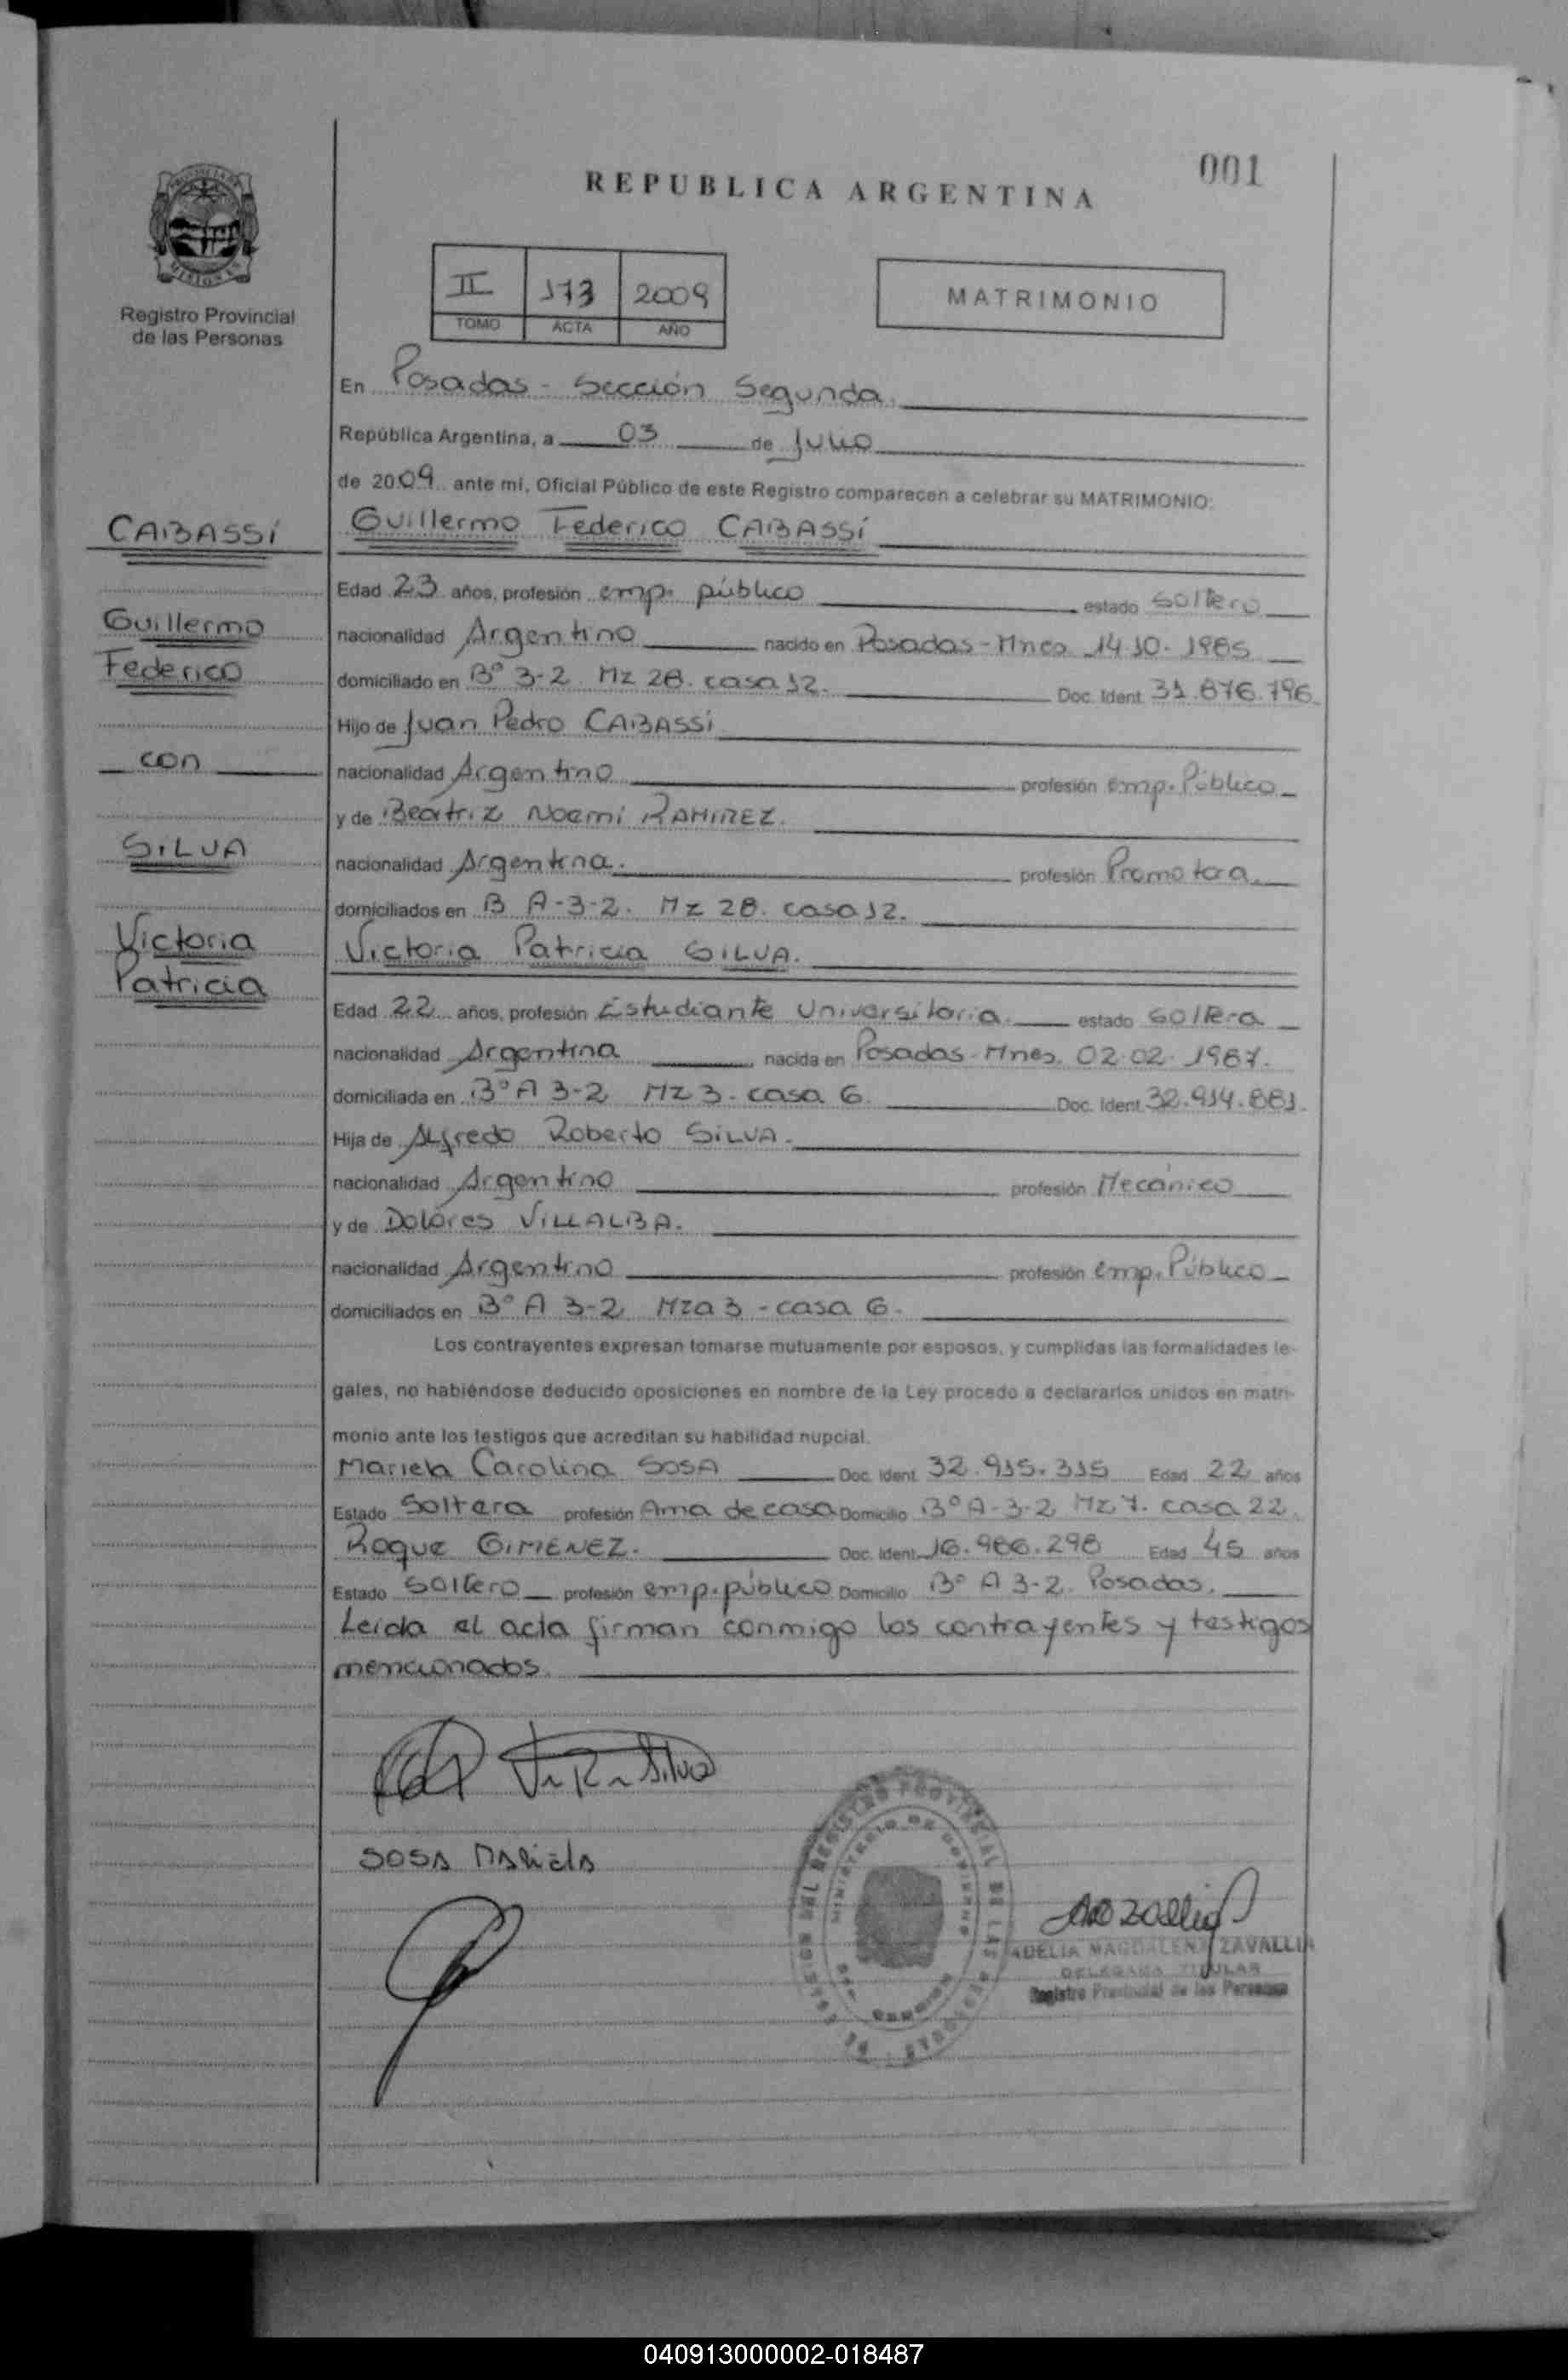 001
REPUBLICA ARGENTINA
Registro Provincial
de las Personas
II 173 2009
TOMO ACTA AÑO
MATRIMONIO
En Posadas - Sección Segunda.
República Argentina, a 03 de Julio
de 2009 ante mí, Oficial Público de este Registro comparecen a celebrar su MATRIMONIO:
CABASSí
Guillermo Federico CABASSí
Edad 23 años, profesión emp. público estado Soltero
Guillermo
nacionalidad Argentino nacido en Posadas - Mnes 14.10.1985
Federico
domiciliado en Bº 3-2 Mz 28. casa 12. Doc. Ident. 31.876.796
Hijo de Juan Pedro CABASSí
con
nacionalidad Argentino profesión emp. Público
y de Beatriz Noemí RAMIREZ.
SiLVA
nacionalidad Argentina. profesión Promotora.
domiciliados en B A-3-2. Mz 28. casa 12.
Victoria
Victoria Patricia SILVA.
Patricia
Edad 22 años, profesión Estudiante Universitaria. estado Soltera
nacionalidad Argentina nacida en Posadas - Mnes. 02.02.1987.
domiciliada en Bº A 3-2 Mz 3. casa 6. Doc. Ident. 32.914.881.
Hija de Alfredo Roberto SiLVA.
nacionalidad Argentino profesión Mecánico
y de Dolores ViLLALBA.
nacionalidad Argentino profesión emp. Público
domiciliados en Bº A 3-2 Mza 3 - casa 6.
Los contrayentes expresan tomarse mutuamente por esposos, y cumplidas las formalidades le-
gales, no habiéndose deducido oposiciones en nombre de la Ley procedo a declararlos unidos en matri-
monio ante los testigos que acreditan su habilidad nupcial.
Mariela Carolina SOSA Doc. Ident. 32.915.315 Edad 22 años
Estado Soltera profesión Ama de casa Domicilio Bº A-3-2 Mz 7. casa 22.
Roque GIMENEZ. Doc. Ident. 16.986.298 Edad 45 años
Estado Soltero profesión emp. público Domicilio Bº A 3-2. Posadas.
Leída el acta firman conmigo los contrayentes y testigos
mencionados.
SOSA MARiela
ADELIA MAGDALENA ZAVALLIA
DELEGADA TITULAR
Registro Provincial de las Personas
040913000002-018487